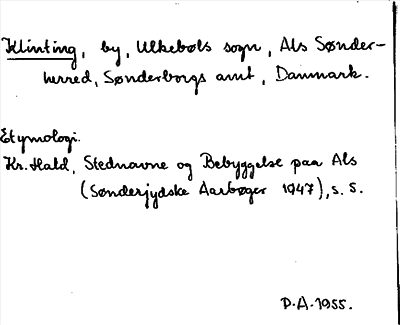 Klinting, by, Ulkebøls sogn, Als Sønder-
herred, Sønderborgs amt, Danmark.
Etymologi.
Kr. Hald, Stednavne og Bebyggelse paa Als
(Sønderjydske Aarbøger 1947), s. 5.
D.A. 1955.